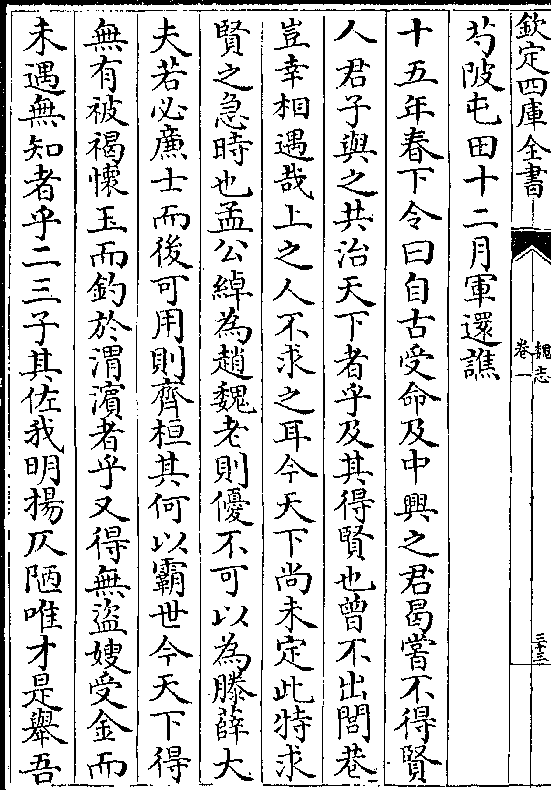 欽定四庫全書
魏志
卷一
三十三
芍陂屯田十二月軍還譙
十五年春下令曰自古受命及中興之君曷嘗不得賢
人君子與之共治天下者乎及其得賢也曾不出閭巷
豈幸相遇哉上之人不求之耳今天下尚未定此特求
賢之急時也孟公綽為趙魏老則優不可以為滕薛大
夫若必廉士而後可用則齊桓其何以霸世今天下得
無有被褐懷玉而釣於渭濱者乎又得無盜嫂受金而
未遇無知者乎二三子其佐我明揚仄陋唯才是舉吾